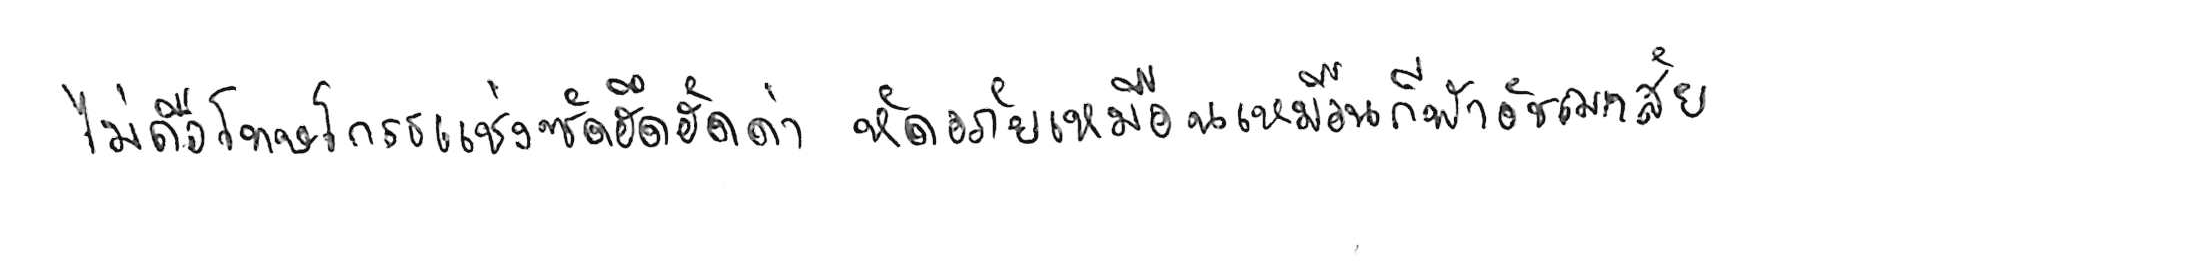 ไม่ถือโทษโกรธแช่งซัดฮึดฮัดด่า หัดอภัยเหมือนเหมือนกีฬาอัชฌาสัย